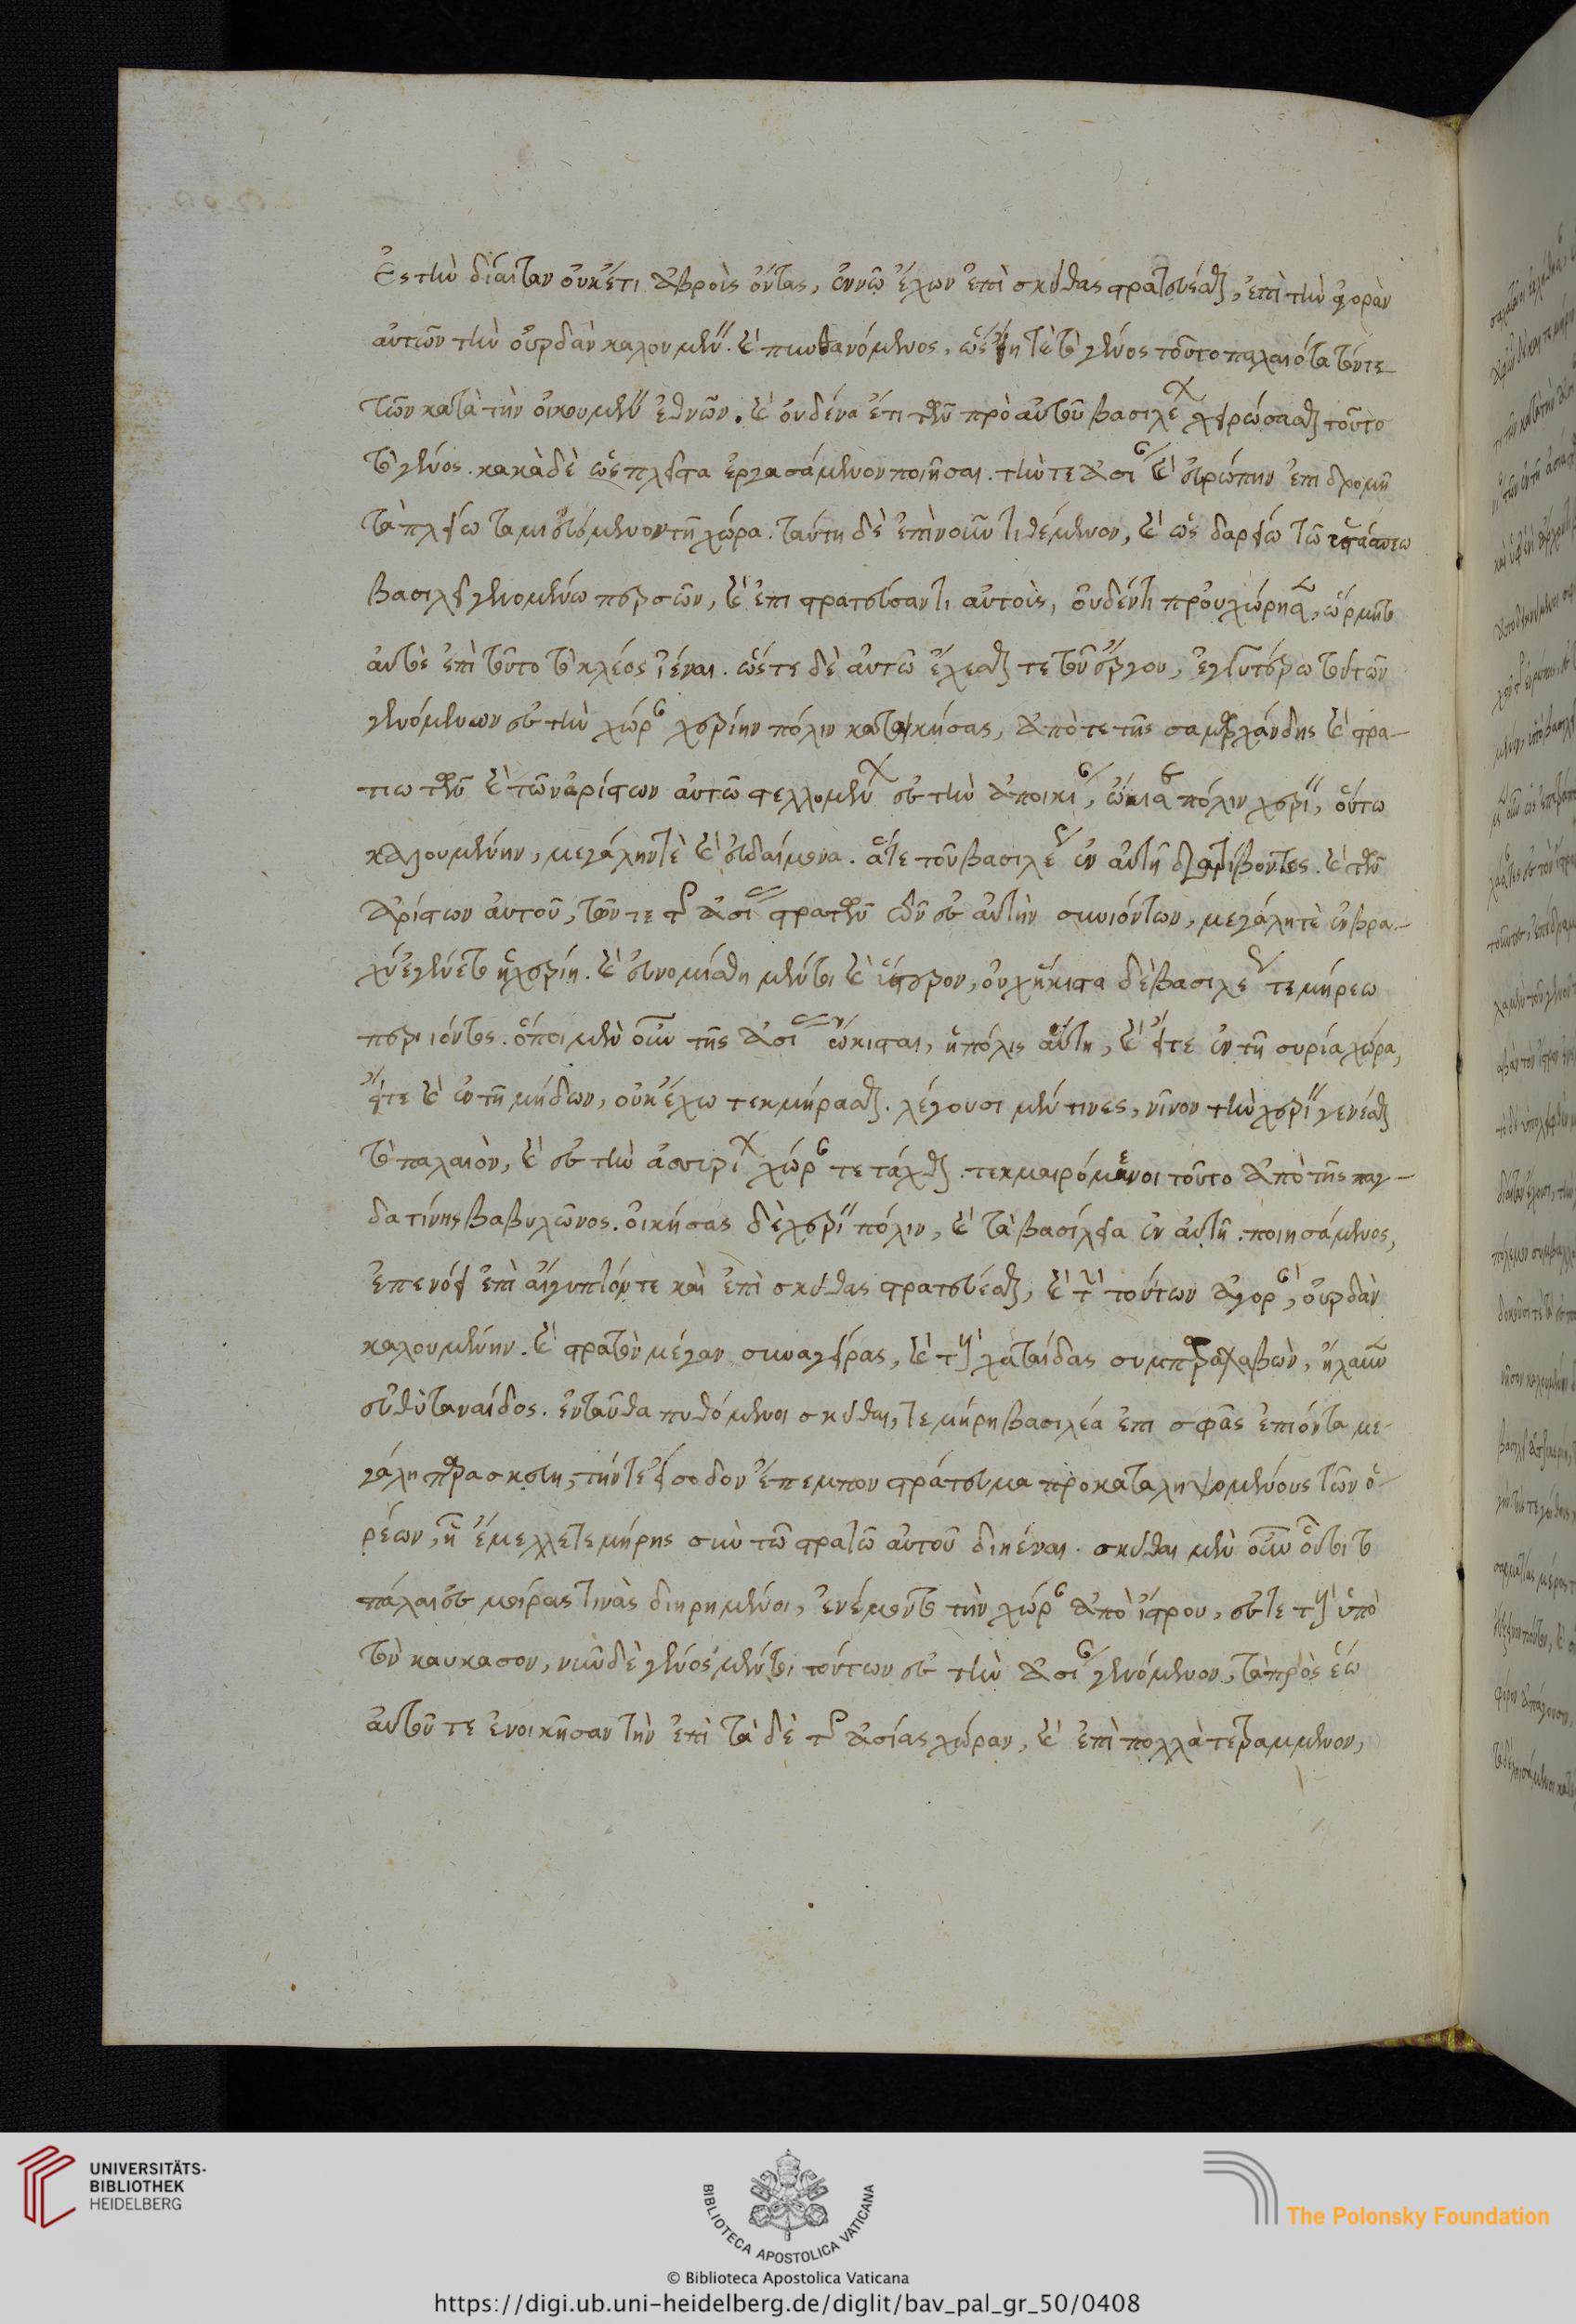 ἐς τὴν δίαιταν οὐκέτι ἁβροὺς ὄντας, ἐν νῷ ἔχων ἐπὶ σκύθας στρατεύεσθαι, ἐπὶ τὴν ἀγορὰν
αὐτῶν τὴν οὐρδὰν καλουμένην. καὶ πυνθανόμενος, ὡς εἴη τὲ τὸ γένος τοῦτο παλαιότατόν τε
τῶν κατὰ τὴν οἰκουμένην ἐθνῶν. καὶ οὐδένα ἔτι τῶν πρὸ αὐτοῦ βασιλέων χειρώσασθαι τοῦτο
τὸ γένος. κακὰ δὲ ὡς πλεῖστα ἐργασάμενον ποιῆσαι. τήν τε ἀσίαν καὶ εὐρώπην ἐπιδρομῇ
τὰ πλείω ταμιευόμενον τῇ χώρᾳ. ταύτῃ δὲ ἐπὶ νοῦν τιθέμενον, καὶ ὡς δαρείῳ τῷ
βασιλεῖ γενομένῳ περσῶν, καὶ ἐπιστρατεύσαντι αὐτοῖς, οὐδέν τι προυχώρησεν, ὥρμητο
αὐτὸς ἐπὶ τοῦτο τὸ κλέος ἰέναι. ὥστε δὲ αὐτῷ ἔχεσθαί τε τοῦ ἔργου, ἐγγυτέρω τούτων
γενόμενον ἐς τὴν χώραν χερίην πόλιν κατοικήσας, ἀπό τε τῆς σαμαρχάνδης καὶ στρα-
τιωτῶν καὶ τῶν ἀρίστων αὐτῷ στελλομένων ἐς τὴν ἀποικίαν, ᾤκισε πόλιν χερίην, οὕτω
καλουμένην, μεγάλην τὲ καὶ εὐδαίμονα. ἅτε τοῦ βασιλέως ἐν αὐτῇ διατρίβοντος. καὶ τῶν
ἀρίστων αὐτοῦ, τῶν τε τῆς ἀσίας στρατῶν ἐς αὐτὴν συνιόντων, μεγάλη τὲ ἐν βρα-
χεῖ ἐγένετο ἡ χερίη. καὶ εὐνομήθη μέντοι καὶ ὕστερον, οὐχ ἥκιστα δὲ βασιλέως τεμήρεω
περιιόντος. ὅποι μὲν οὖν τῆς ἀσίας ᾤκισται, ἡ πόλις αὕτη, καὶ εἴτε ἐν τῇ συρίᾳ χώρᾳ,
εἴτε καὶ ἐν τῇ μήδων, οὐκ ἔχω τεκμήρασθαι. λέγουσι μέν τινες, νῖνον τὴν χερίην γενέσθαι
τὸ παλαιὸν, καὶ ἐς τὴν ἀσσυρίων χώραν τετάχθαι. τεκμαιρόμενοι τοῦτο ἀπὸ τῆς παγ-
δατίνης βαβυλῶνος. οἰκήσας δὲ χερίην πόλιν, καὶ τὰ βασίλεια ἐν αὐτῇ ποιησάμενος,
ἐπενόει ἐπὶ αἴγυπτόν τε καὶ ἐπὶ σκύθας στρατεύεσθαι, καὶ τὴν τούτων ἀγορὰν, οὐρδὰν
καλουμένην. καὶ στρατὸν μέγαν συναγείρας, καὶ τοὺς χαταΐδας συμπαραλαβὼν, ἤλαυνεν
εὐθὺ ταναΐδος. ἐνταῦθα πυθόμενοι σκύθαι, τεμήρη βασιλέα ἐπὶ σφᾶς ἐπιόντα με-
γάλῃ παρασκευῇ, τήν τε εἴσοδον ἔπεμπον στράτευμα προκαταληψομένους τῶν ὀ-
ρέων, ᾗ ἔμελλε τεμήρης σὺν τῷ στρατῷ αὐτοῦ διιέναι. σκύθαι μὲν οὖν οὗτοι τὸ
πάλαι ἐς μοίρας τινὰς διῃρημένοι, ἐνέμοντο τὴν χώραν ἀπὸ ἴστρου, ἔς τε τοὺς ὑπὸ
τὸν καύκασον, νῦν δὲ γένος μέντοι τούτων ἐς τὴν ἀσίαν γενόμενον, τὰ πρὸς ἕω
αὐτοῦ τε ἐνοικῆσαν τὴν ἐπὶ τάδε τῆς ἀσίας χώραν, καὶ ἐπὶ πολλὰ τετραμμένον,
UNIVERSITÄTS-
BIBLIOTHEK
HEIDELBERG
BIBLIOTECA APOSTOLICA VATICANA
The Polonsky Foundation
© Biblioteca Apostolica Vaticana
https://digi.ub.uni-heidelberg.de/diglit/bav_pal_gr_50/0408